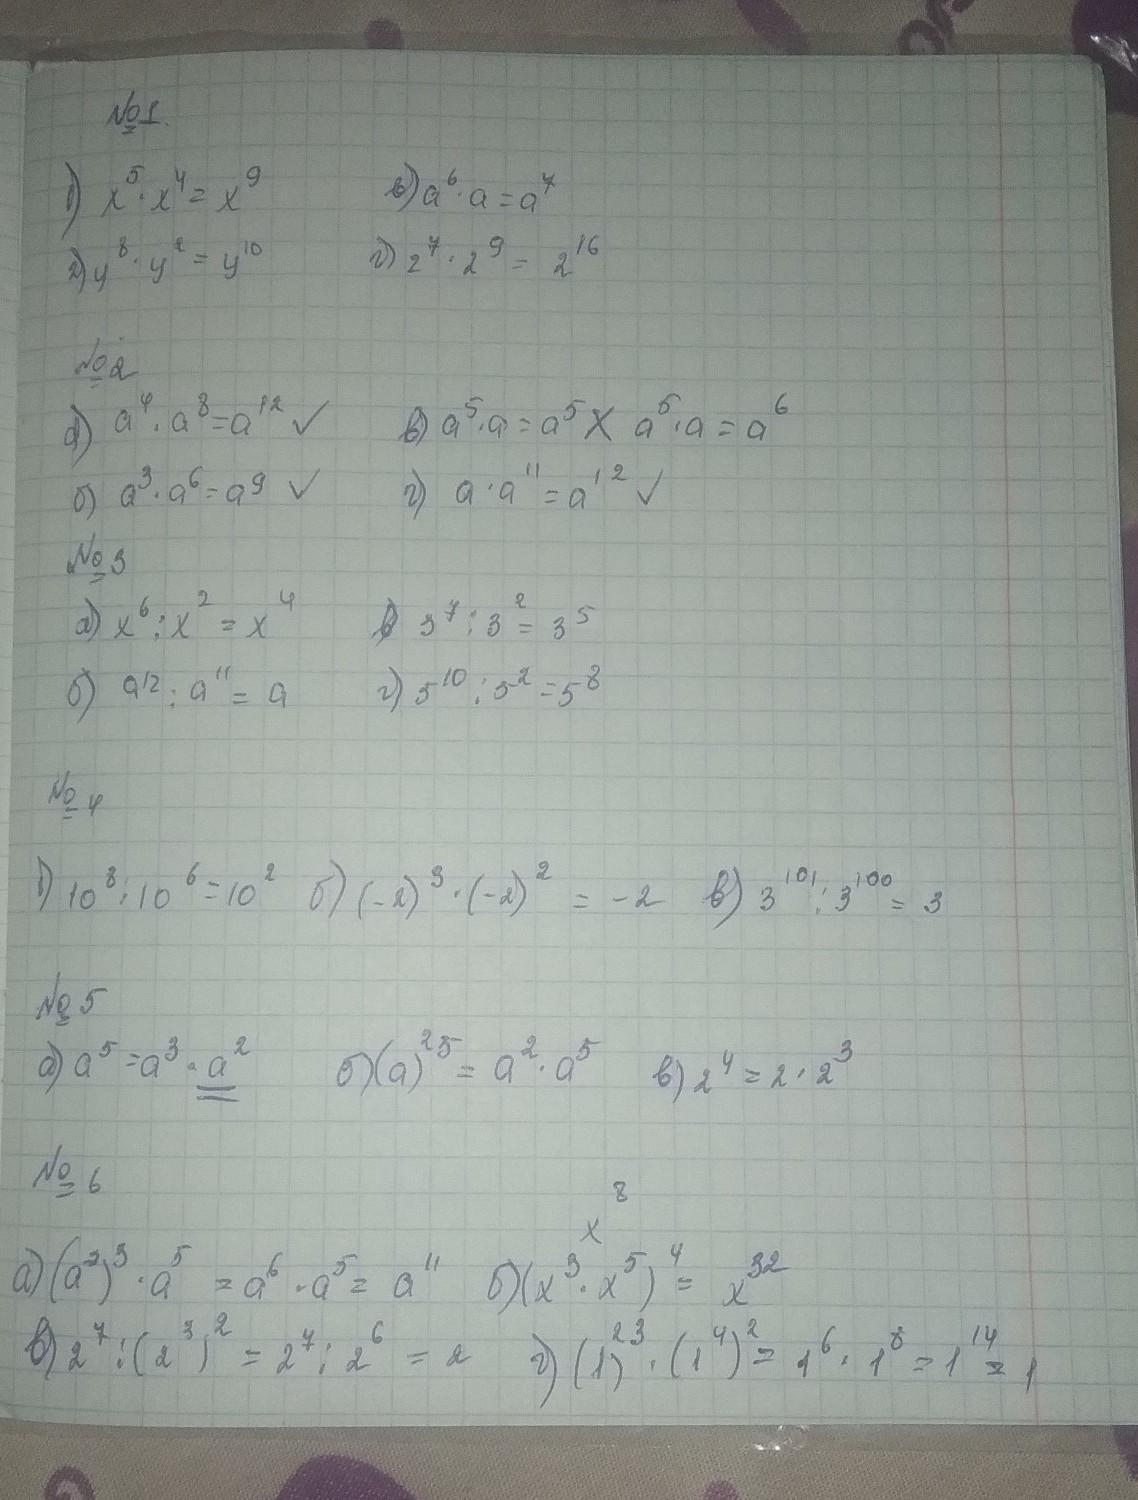 №1.
1) x⁵ · x⁴ = x⁹ в) a⁶ · a = a⁷
2) y⁸ · y² = y¹⁰ г) 2⁷ · 2⁹ = 2¹⁶
№2
а) a⁴ · a⁸ = a¹² ✓ в) a⁵ · a = a⁵ X a⁵ · a = a⁶
б) a³ · a⁶ = a⁹ ✓ г) a · a¹¹ = a¹² ✓
№3
а) x⁶ : x² = x⁴ в) 3⁷ : 3² = 3⁵
б) a¹² : a¹¹ = a г) 5¹⁰ : 5² = 5⁸
№4
1) 10⁸ : 10⁶ = 10² б) (-2)³ · (-2)² = -2 в) 3¹⁰¹ : 3¹⁰⁰ = 3
№5
а) a⁵ = a³ · a² б) (a)²⁵ = a² · a⁵ в) 2⁴ = 2 · 2³
№6
x⁸
а) (a²)³ · a⁵ = a⁶ · a⁵ = a¹¹ б) (x³ · x⁵)⁴ = x³²
в) 2⁷ : (2³)² = 2⁷ : 2⁶ = 2 г) (1)²³ · (1⁴)² = 1⁶ · 1⁸ = 1¹⁴ = 1